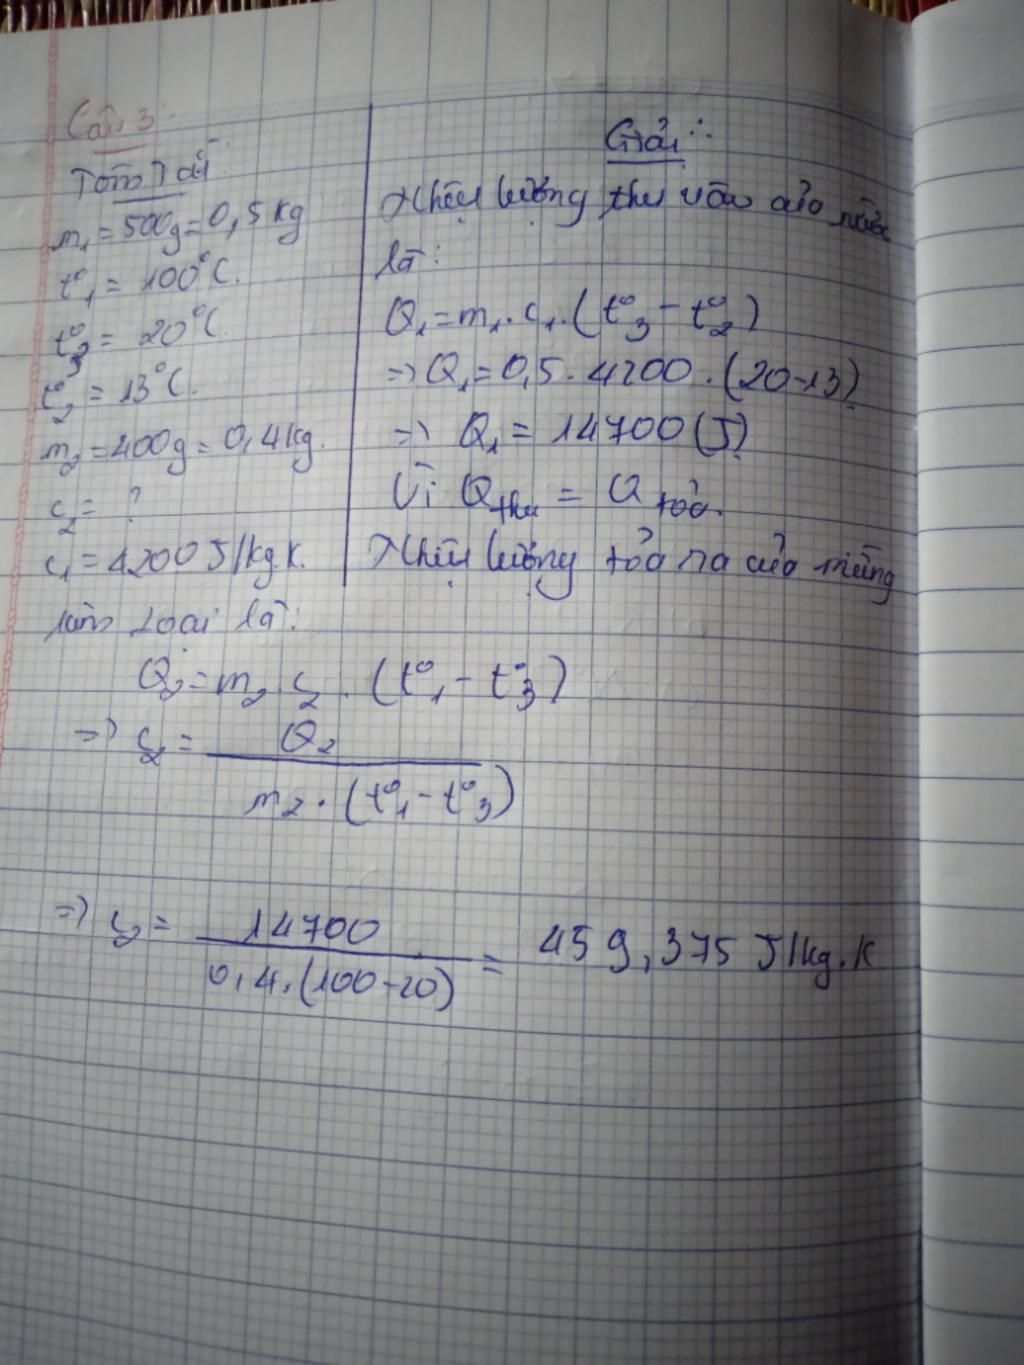 Câu 3:
Tóm Tắt:
m₁ = 500g = 0,5 kg
t°₁ = 100°C.
t°₃ = 20°C.
t°₂ = 13°C.
m₂ = 400g = 0,4 kg.
c₂ = ?
c₁ = 4200 J/kg.K.
Giải:
Nhiệt lượng thu vào của nước
là:
Q₁ = m₁.c₁.(t°₃ - t°₂)
=> Q₁ = 0,5.4200.(20-13)
=> Q₁ = 14700 (J)
Vì Q thu = Q tỏa.
Nhiệt lượng tỏa ra của miếng
kim loại là:
Q₂ = m₂.c₂.(t°₁ - t°₃)
=> c₂ = Q₂ / m₂.(t°₁ - t°₃)
=> c₂ = 14700 / 0,4.(100-20) = 459,375 J/kg.K